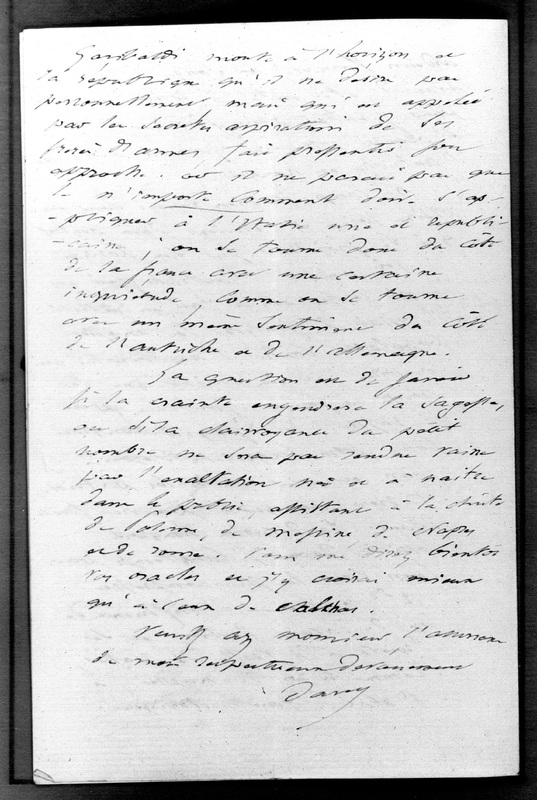 Garibaldi monte à l'horizon et
la république qu'il ne désire pas
personnellement mais qui est appelée
par les secrètes aspirations de ses
frères d'armes fait pressentir son
approche. or il ne paraît pas que
le n'importe comment doive s'ap-
-pliquer à l'Italie une et républi-
-caine ; on se tourne donc du côté
de la france avec une certaine
inquiétude, comme on se tourne
avec un même sentiment du côté
de l'autriche et de l'allemagne.
La question est de savoir
si la crainte engendrera la sagesse,
ou si la clairvoyance du petit
nombre ne sera pas rendue vaine
par l'exaltation née et à naître
dans le public, assistant à la chûte
de Palerme, de messine de Naples
et de rome. Vous me direz bientôt
vos oracles et j'y croirai mieux
qu'à ceux de
Veuillez agréer monsieur l'assurance
de mon respectueux dévouement